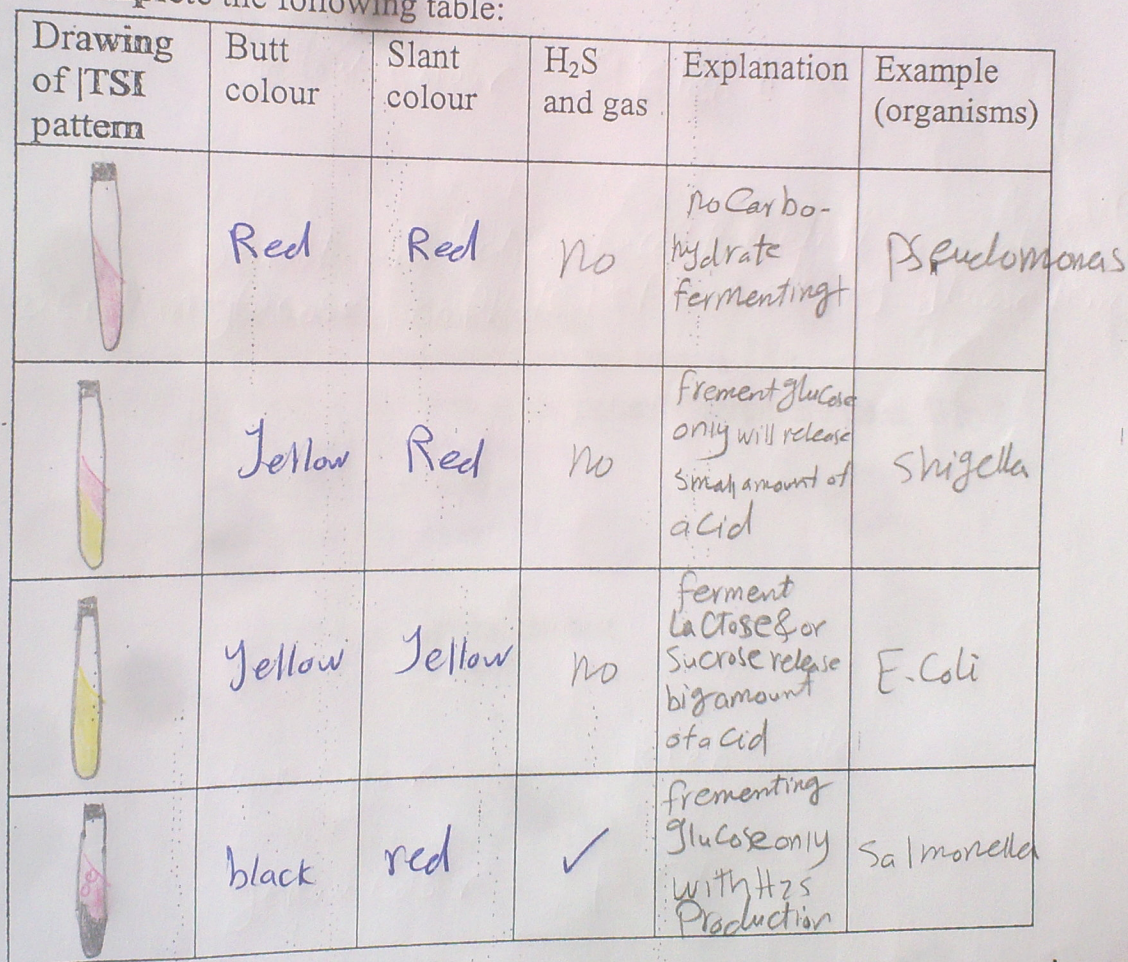 the following table:
Drawing
of |TSI
pattern
Butt
colour
Slant
colour
H₂S
and gas
Explanation
Example
(organisms)
Red
Red
no
no Carbo-
hydrate
fermenting
Pseudomonas
Yellow
Red
no
frement glucose
only will release
small amount of
acid
Shigella
Yellow
Yellow
no
ferment
Lactose & or
Sucrose release
big amount
of acid
E. Coli
black
red
✓
frementing
glucose only
with H2S
Production
Salmonella